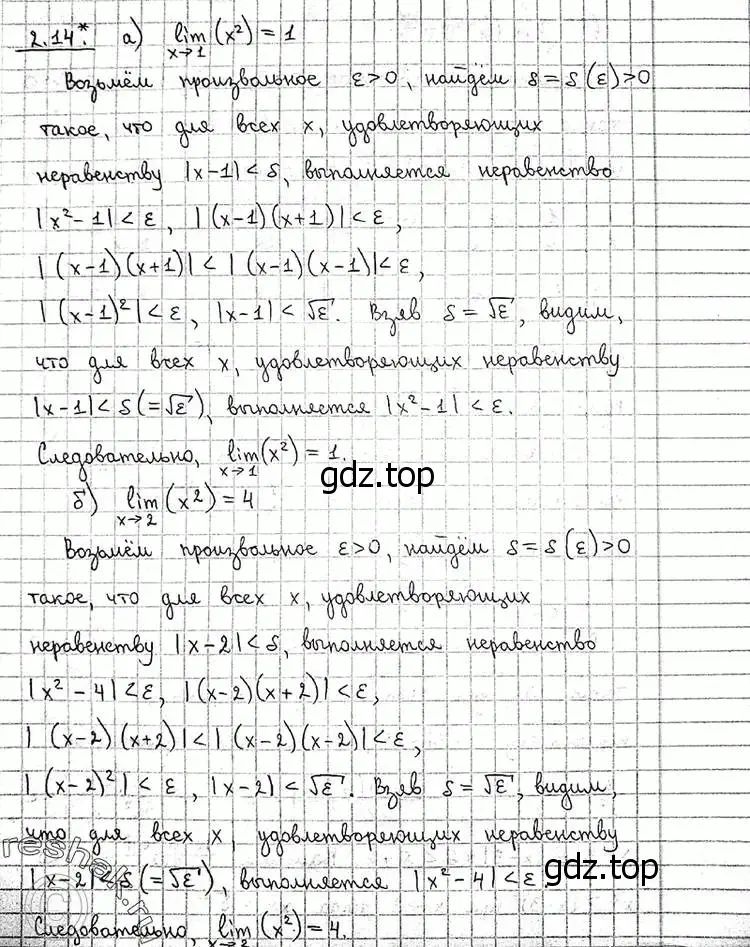 2.14*. а) lim (x²) = 1
x→1
Возьмём произвольное ε>0, найдём δ=δ(ε)>0
такое, что для всех x, удовлетворяющих
неравенству |x-1|<δ, выполняется неравенство
|x²-1|<ε, |(x-1)(x+1)|<ε,
|(x-1)(x+1)|<|(x-1)(x-1)|<ε,
|(x-1)²|<ε, |x-1|<√ε. Взяв δ=√ε, видим,
что для всех x, удовлетворяющих неравенству
|x-1|<δ(=√ε), выполняется |x²-1|<ε.
Следовательно, lim (x²) = 1.
x→1
gdz.top
б) lim (x²) = 4
x→2
Возьмём произвольное ε>0, найдём δ=δ(ε)>0
такое, что для всех x, удовлетворяющих
неравенству |x-2|<δ, выполняется неравенство
|x²-4|<ε, |(x-2)(x+2)|<ε,
|(x-2)(x+2)|<|(x-2)(x-2)|<ε,
|(x-2)²|<ε, |x-2|<√ε. Взяв δ=√ε, видим,
что для всех x, удовлетворяющих неравенству
|x-2|<δ(=√ε), выполняется |x²-4|<ε.
gdz.top
Следовательно, lim (x²) = 4.
x→2
reshak.ru